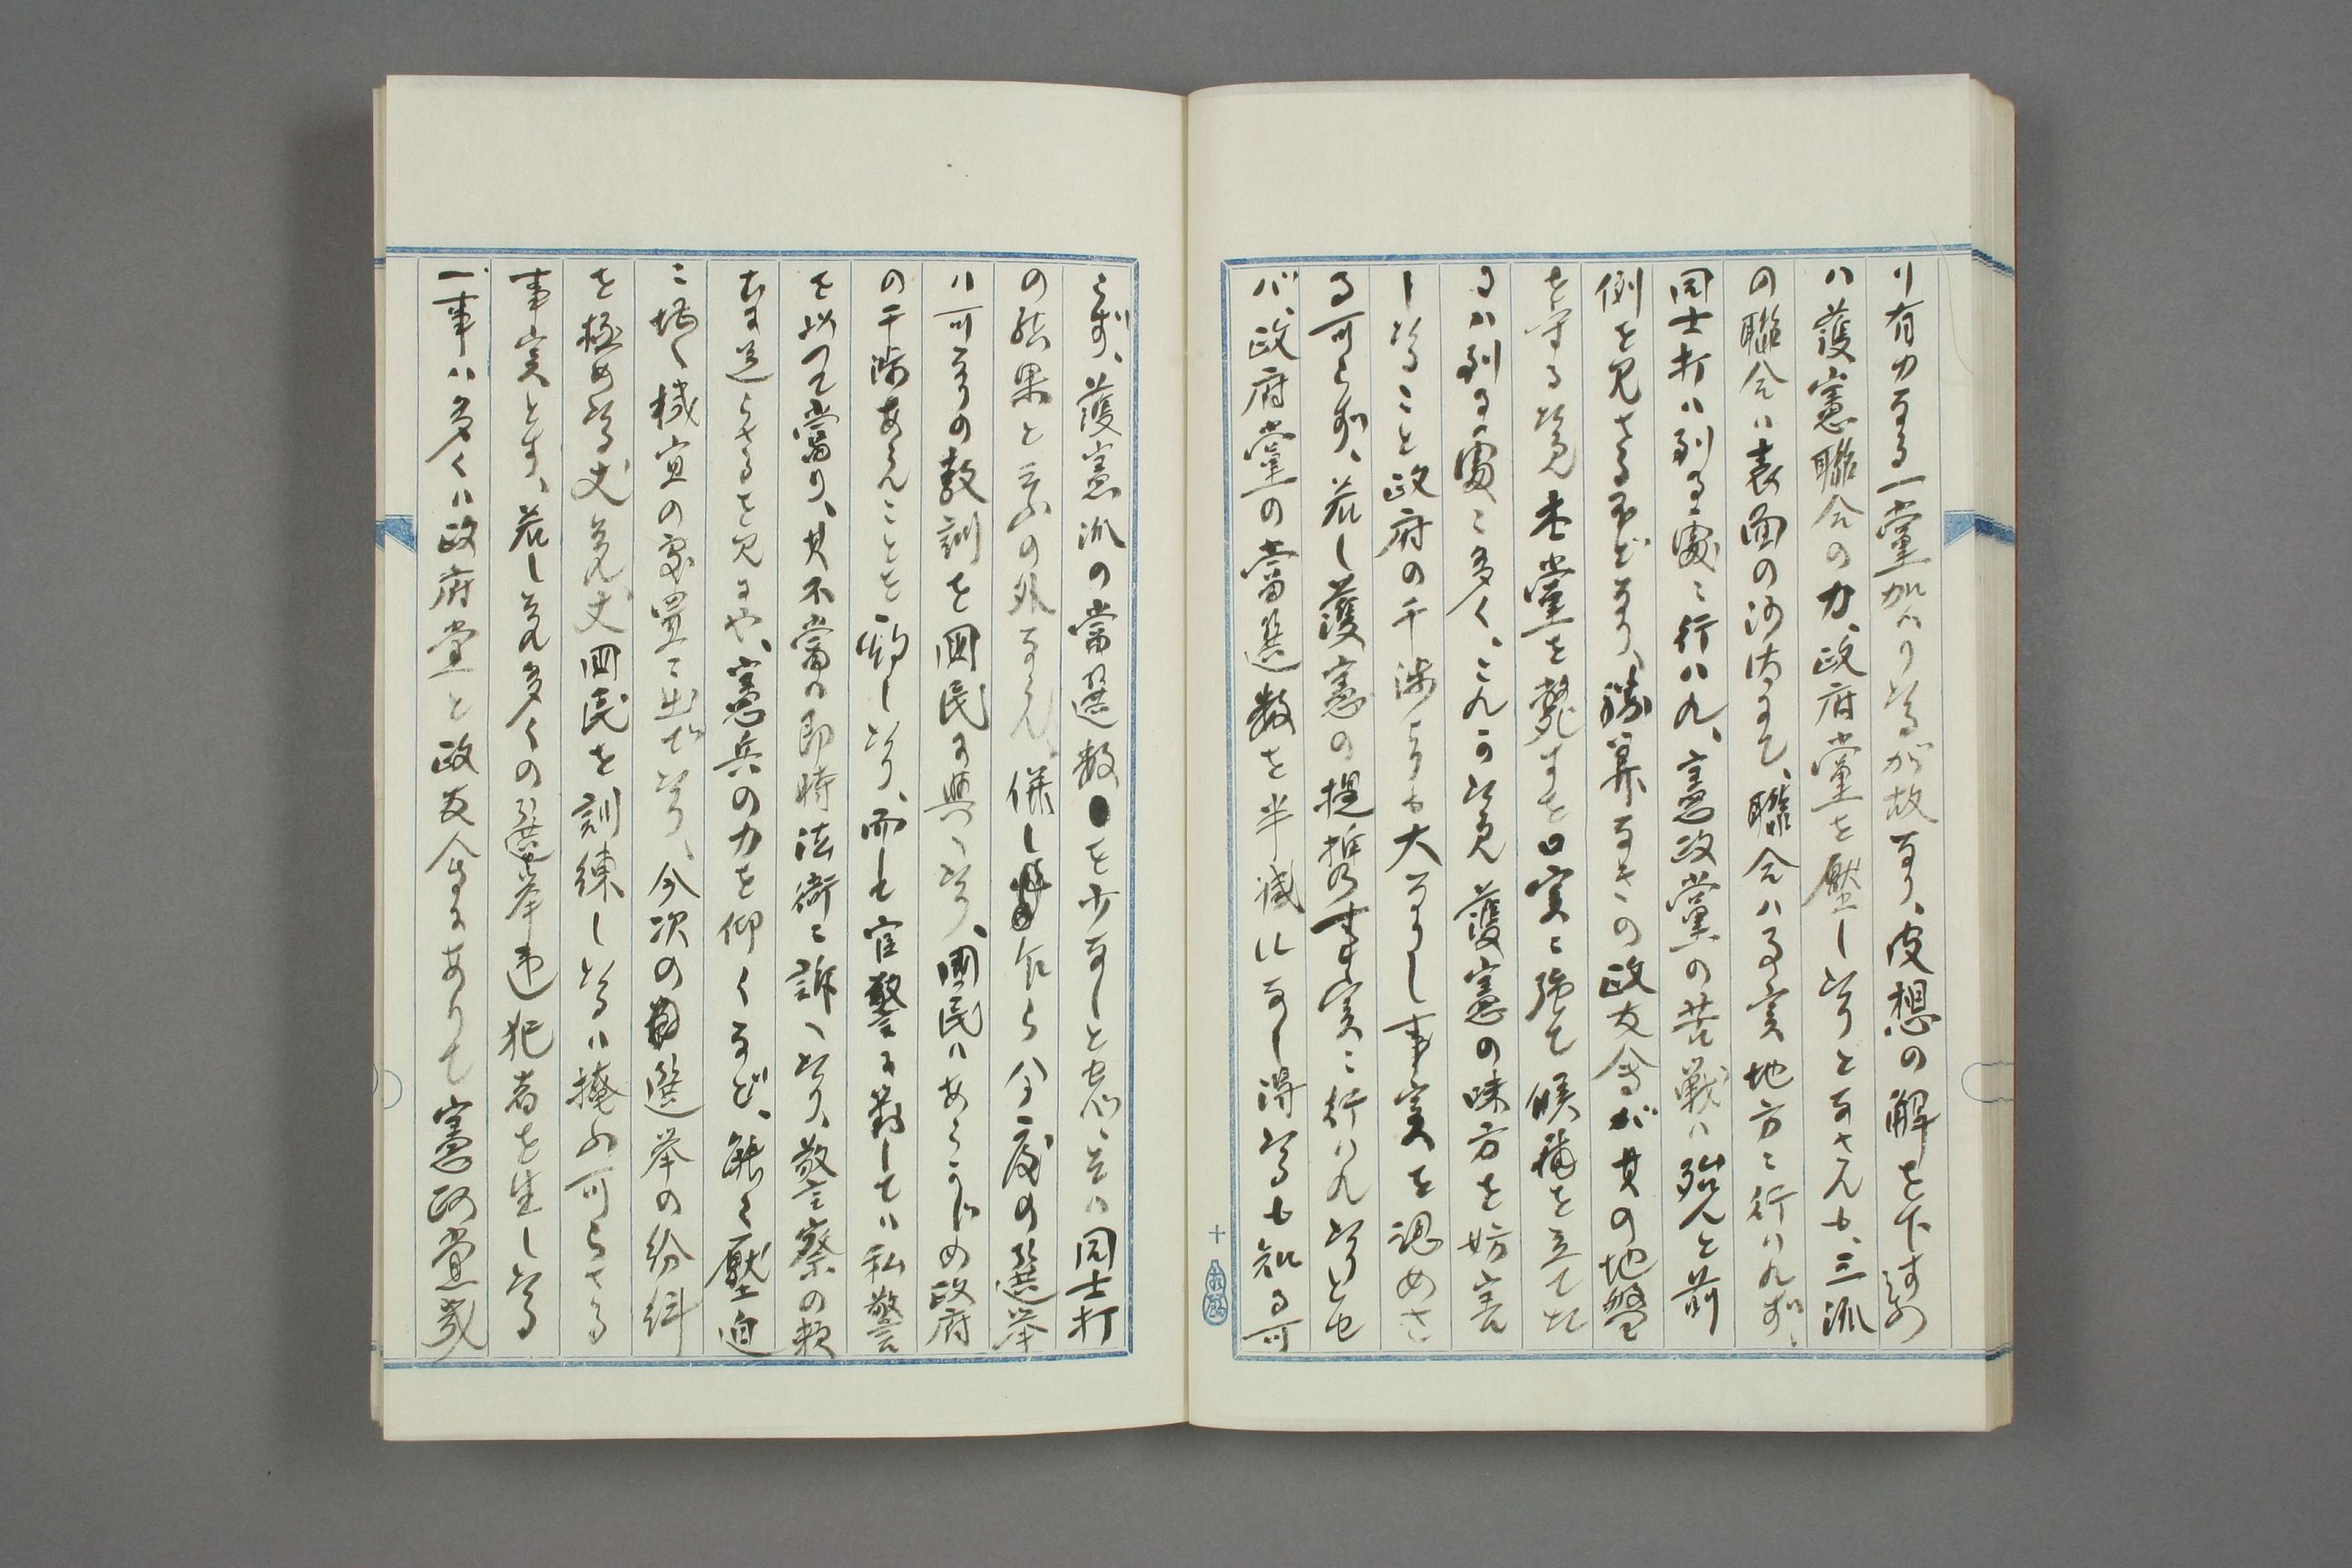 り有力なる一黨加ハり居るが故なり、皮想の解を下す者
ハ護憲聯合の力、政府黨を壓し居りとなさんも、三派
の聯合ハ表面の沙汰にて、聯合ハる実地方ニ行ハれず、
同士打ハ到る處ニ行ハれ、憲政黨の苦戰ハ殆んと前
例を見さる不どなり、勝算なきの政友会が其の地盤
を守る以覚本黨を斃すを口実ニ強て候補を立てた
るハ到る處ニ多く、これの為め護憲の味方を妨害
し居ること政府の干渉よりも大なりし事実を認めさ
る可らず、若し護憲の提携事実ニ行ハれ居りとせ
バ、政府黨の當選数を半減ニなし得居も知る可
らず、護憲派の當選数を少なしと思ふ者ハ同士打
の結果と云ふの外なき、併し乍ら今度の選挙
ハ可なりの教訓を国民に與へ居り、國民ハあらかじめ政府
の干渉あらんことを予期し居り、而して官警に対してハ私警
を以つて當り、其不當の即時法衙ニ訴へ居り、警察の頼
むに足らさるを見るや、憲兵の力を仰くなど、能く壓迫
ニ堪へ機宜の処置ニ出で居り、今次の選挙の紛糾
を極め居る丈夫れ丈国民を訓練し居るハ掩ふ可らさる
事実とす、若し夫れ多くの選挙違犯者を生し居る
一事ハ多くハ政府黨と政友会とにありて憲政黨或
十